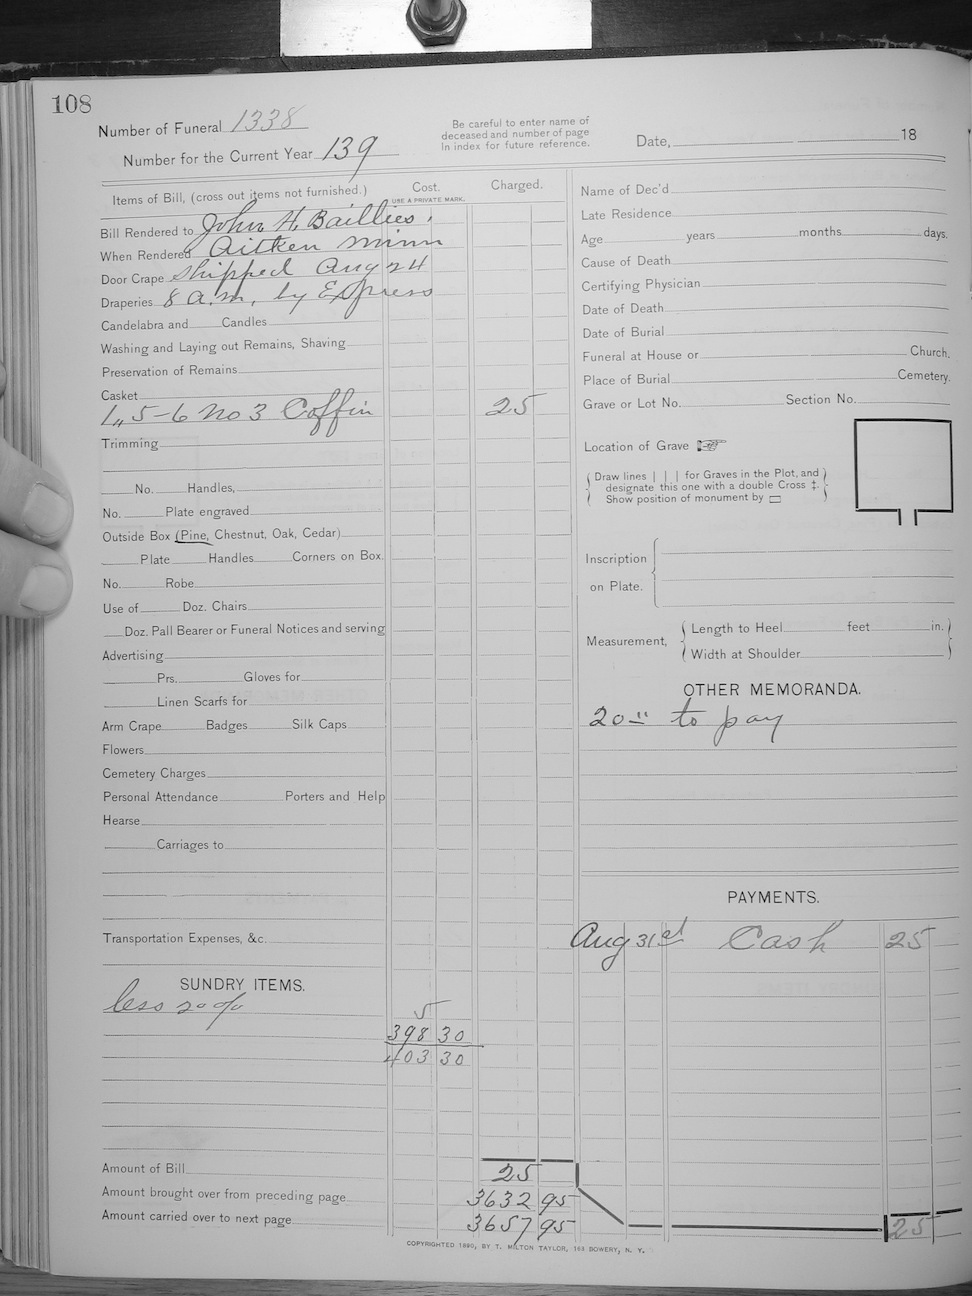 108
Number of Funeral 1338
Number for the Current Year 139
Be careful to enter name of
deceased and number of page
in index for future reference.
Date, 18
Items of Bill, (cross out items not furnished.)
Cost.
USE A PRIVATE MARK.
Charged.
Bill Rendered to John H. Baillies.
When Rendered Aitken Minn
Door Crape Shipped Aug 24
Draperies 8 a.m. by Express
Candelabra and Candles
Washing and Laying out Remains, Shaving
Preservation of Remains
Casket
1,, 5-6 No 3 Coffin 25
Trimming
No. Handles,
No. Plate engraved
Outside Box (Pine, Chestnut, Oak, Cedar)
Plate Handles Corners on Box.
No. Robe
Use of Doz. Chairs
Doz. Pall Bearer or Funeral Notices and serving
Advertising
Prs. Gloves for
Linen Scarfs for
Arm Crape Badges Silk Caps
Flowers
Cemetery Charges
Personal Attendance Porters and Help
Hearse
Carriages to
Transportation Expenses, &c.
SUNDRY ITEMS.
less 20 % 5
398 30
403 30
Amount of Bill 25
Amount brought over from preceding page 3632 95
Amount carried over to next page 3657 95
Name of Dec'd
Late Residence
Age years months days.
Cause of Death
Certifying Physician
Date of Death
Date of Burial
Funeral at House or Church.
Place of Burial Cemetery.
Grave or Lot No. Section No.
Location of Grave ☞
Draw lines | | | for Graves in the Plot, and
designate this one with a double Cross ‡.
Show position of monument by ▭
Inscription
on Plate.
Measurement,
Length to Heel feet in.
Width at Shoulder
OTHER MEMORANDA.
20 to pay
PAYMENTS.
Aug 31st Cash 25
25
COPYRIGHTED 1890, BY T. MILTON TAYLOR, 183 BOWERY, N. Y.